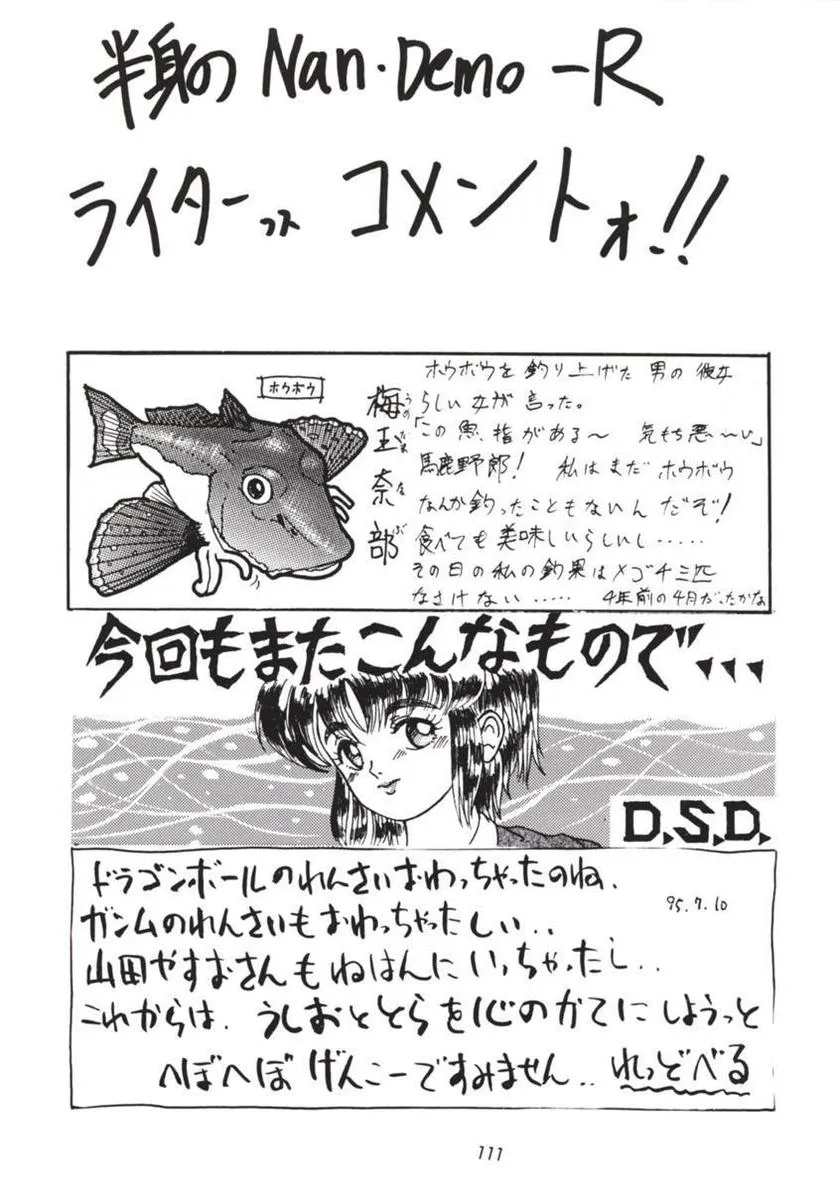 半身の Nan・Demo -R
ライターズ コメントォ!!
ホウボウ
梅玉奈部
うめ たま な べ
ホウボウを釣り上げた男の彼女
らしい女が言った。
「この魚、指がある〜 気もち悪〜い」
馬鹿野郎! 私はまだホウボウ
なんか釣ったこともないんだぞ!
食べても美味しいらしいし……
その日の私の釣果はメゴチ三匹
なさけない…… 4年前の4月だったかな
今回もまたこんなもので...
D.S.D.
ドラゴンボールのれんさいおわっちゃったのね、
95.7.10
ガンムのれんさいもおわっちゃったしい..
山田やすおさんもねはんにいっちゃったし..
これからは、うしおととらを心のかてにしようっと
へぼへぼげんこーですみません.. れっどべる
111